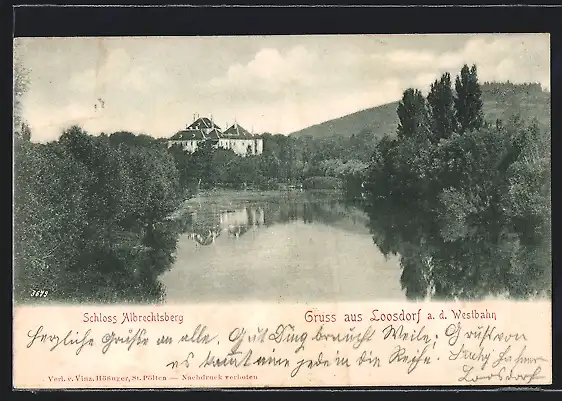 3679
Schloss Albrechtsberg
Gruss aus Loosdorf a. d. Westbahn
Herzliche Grüße an alle. Gut Ding braucht Weile, Grüß von
es kommt eine jeden in die Reihe.
Loosdorf
Verl. v. Vinz. Hößinger, St. Pölten — Nachdruck verboten